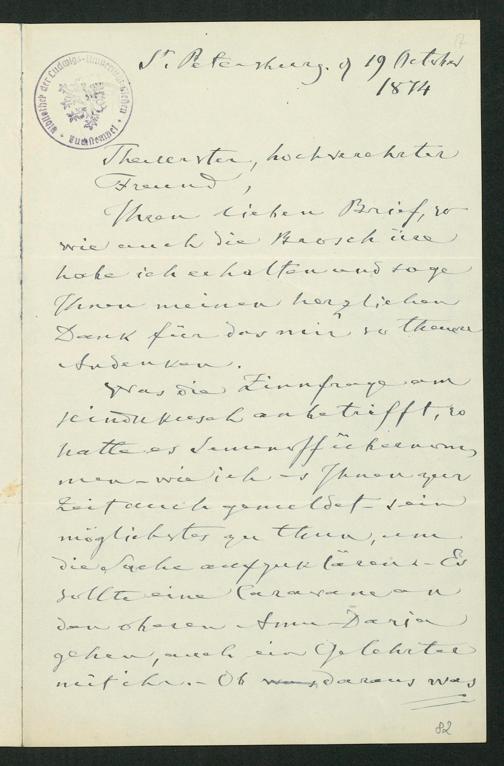 17
Bibliothek der Ludwigs-Universität Giessen
St. Petersburg. d 19 October
1874
Theuerster, hochverehrter
Freund,
Ihren lieben Brief, so
wie auch die Broschüre
habe ich erhalten und sage
Ihnen meinen herzlichen
Dank für das mir so theuere
Andenken.
Was die Zinnfrage am
Hindukusch anbetrifft, so
hatte es Semenoff übernom
men – wie ich es Ihnen zur
Zeit auch gemeldet – sein
möglichstes zu thun, um
die Sache aufzuklären. – Es
sollte eine Caravane an
den oberen Amu-Daria
gehen, auch ein Gelehrter
mit ihr. – Ob daraus was
82